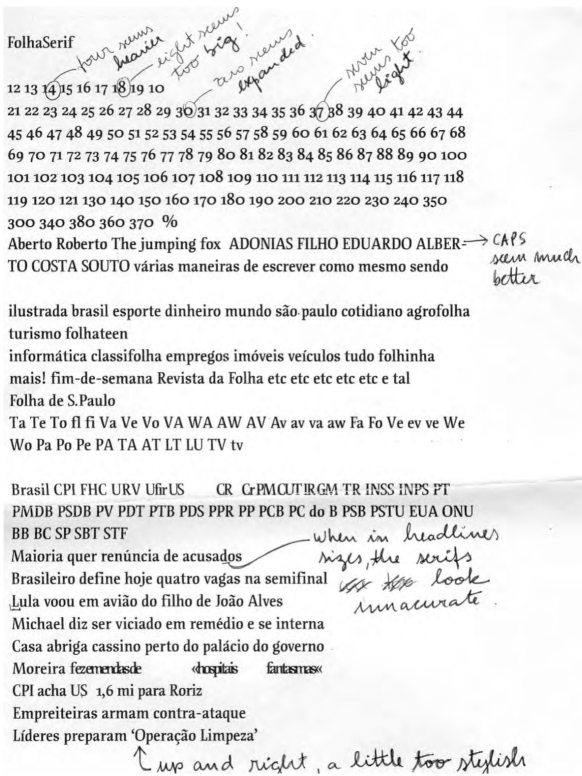 FolhaSerif
four seems
heavier
eight seems
too big!
zero seems
expanded
seven
seems too
light.
12 13 14 15 16 17 18 19 10
21 22 23 24 25 26 27 28 29 30 31 32 33 34 35 36 37 38 39 40 41 42 43 44
45 46 47 48 49 50 51 52 53 54 55 56 57 58 59 60 61 62 63 64 65 66 67 68
69 70 71 72 73 74 75 76 77 78 79 80 81 82 83 84 85 86 87 88 89 90 100
101 102 103 104 105 106 107 108 109 110 111 112 113 114 115 116 117 118
119 120 121 130 140 150 160 170 180 190 200 210 220 230 240 350
300 340 380 360 370 %
Aberto Roberto The jumping fox ADONIAS FILHO EDUARDO ALBER-
TO COSTA SOUTO várias maneiras de escrever como mesmo sendo
CAPS
seem much
better
ilustrada brasil esporte dinheiro mundo são paulo cotidiano agrofolha
turismo folhateen
informática classifolha empregos imóveis veículos tudo folhinha
mais! fim-de-semana Revista da Folha etc etc etc etc etc e tal
Folha de S.Paulo
Ta Te To fl fi Va Ve Vo VA WA AW AV Av av va aw Fa Fo Ve ev ve We
Wo Pa Po Pe PA TA AT LT LU TV tv
Brasil CPI FHC URV Ufir US CR Cr PM CUT IR GM TR INSS INPS PT
PMDB PSDB PV PDT PTB PDS PPR PP PCB PC do B PSB PSTU EUA ONU
BB BC SP SBT STF
Maioria quer renúncia de acusados
Brasileiro define hoje quatro vagas na semifinal
Lula voou em avião do filho de João Alves
Michael diz ser viciado em remédio e se interna
Casa abriga cassino perto do palácio do governo
Moreira fez emendas de «hospitais fantasmas«
CPI acha US 1,6 mi para Roriz
Empreiteiras armam contra-ataque
Líderes preparam ‘Operação Limpeza’
when in headlines
sizes, the serifs
look
innacurate.
up and right, a little too stylish